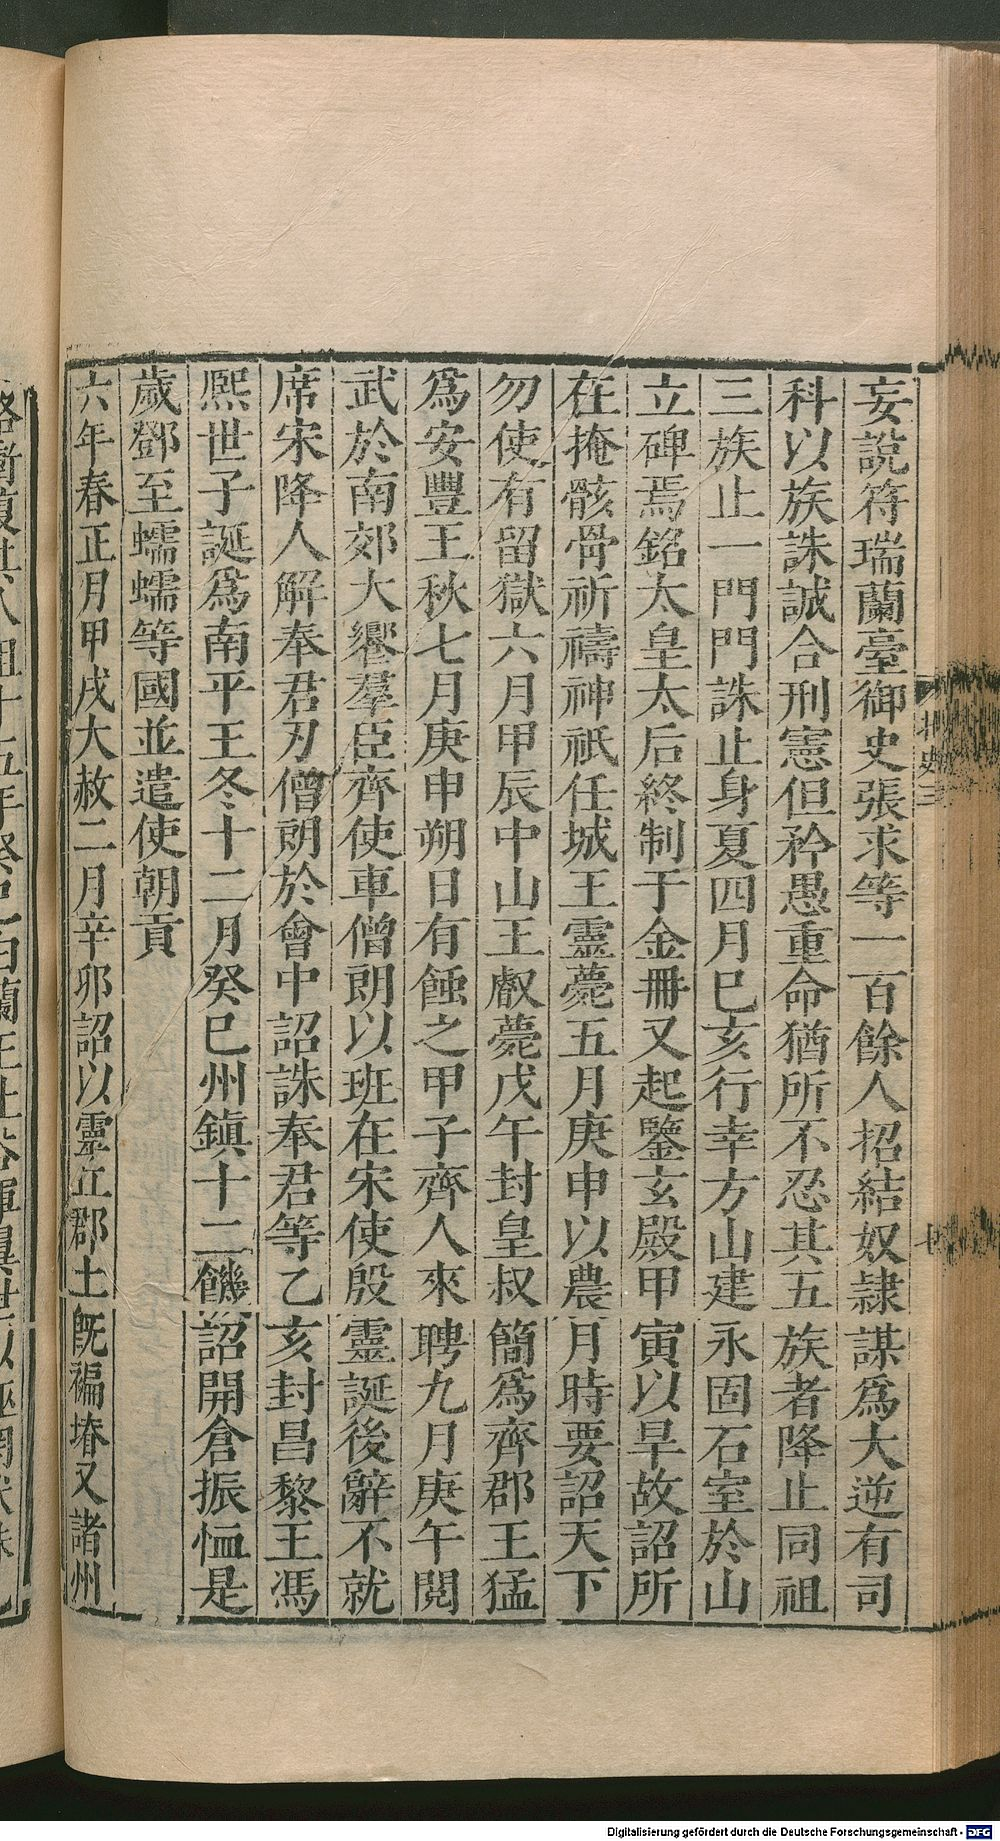 妄說符瑞蘭臺御史張求等一百餘人招結奴隷謀爲大逆有司
科以族誅誠合刑憲但矜愚重命猶所不忍其五族者降止同祖
三族止一門門誅止身夏四月巳亥行幸方山建永固石室於山
立碑焉銘太皇太后終制于金冊又起鑒玄殿甲寅以旱故詔所
在掩骸骨祈禱神祇任城王靈薨五月庚申以農月時要詔天下
勿使有留獄六月甲辰中山王叡薨戊午封皇叔簡爲齊郡王猛
爲安豐王秋七月庚申朔日有蝕之甲子齊人來聘九月庚午閱
武於南郊大饗羣臣齊使車僧朗以班在宋使殷靈誕後辭不就
席宋降人解奉君刃僧朗於會中詔誅奉君等乙亥封昌黎王馮
熙世子誕爲南平王冬十二月癸巳州鎮十二饑詔開倉振恤是
歲鄧至蠕蠕等國並遣使朝貢
六年春正月甲戌大赦二月辛卯詔以靈丘郡土旣褊塉又諸州
北史三
七
Digitalisierung gefördert durch die Deutsche Forschungsgemeinschaft - DFG